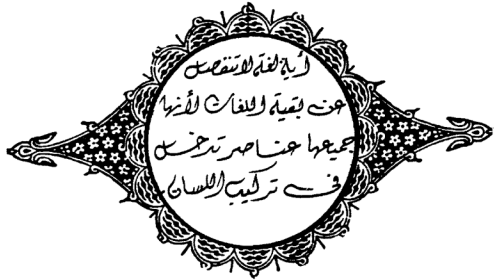 أية لغة لا تنفصل
عن بقية اللغات لأنها
جميعها عناصر تدخل
في تركيب اللسان.